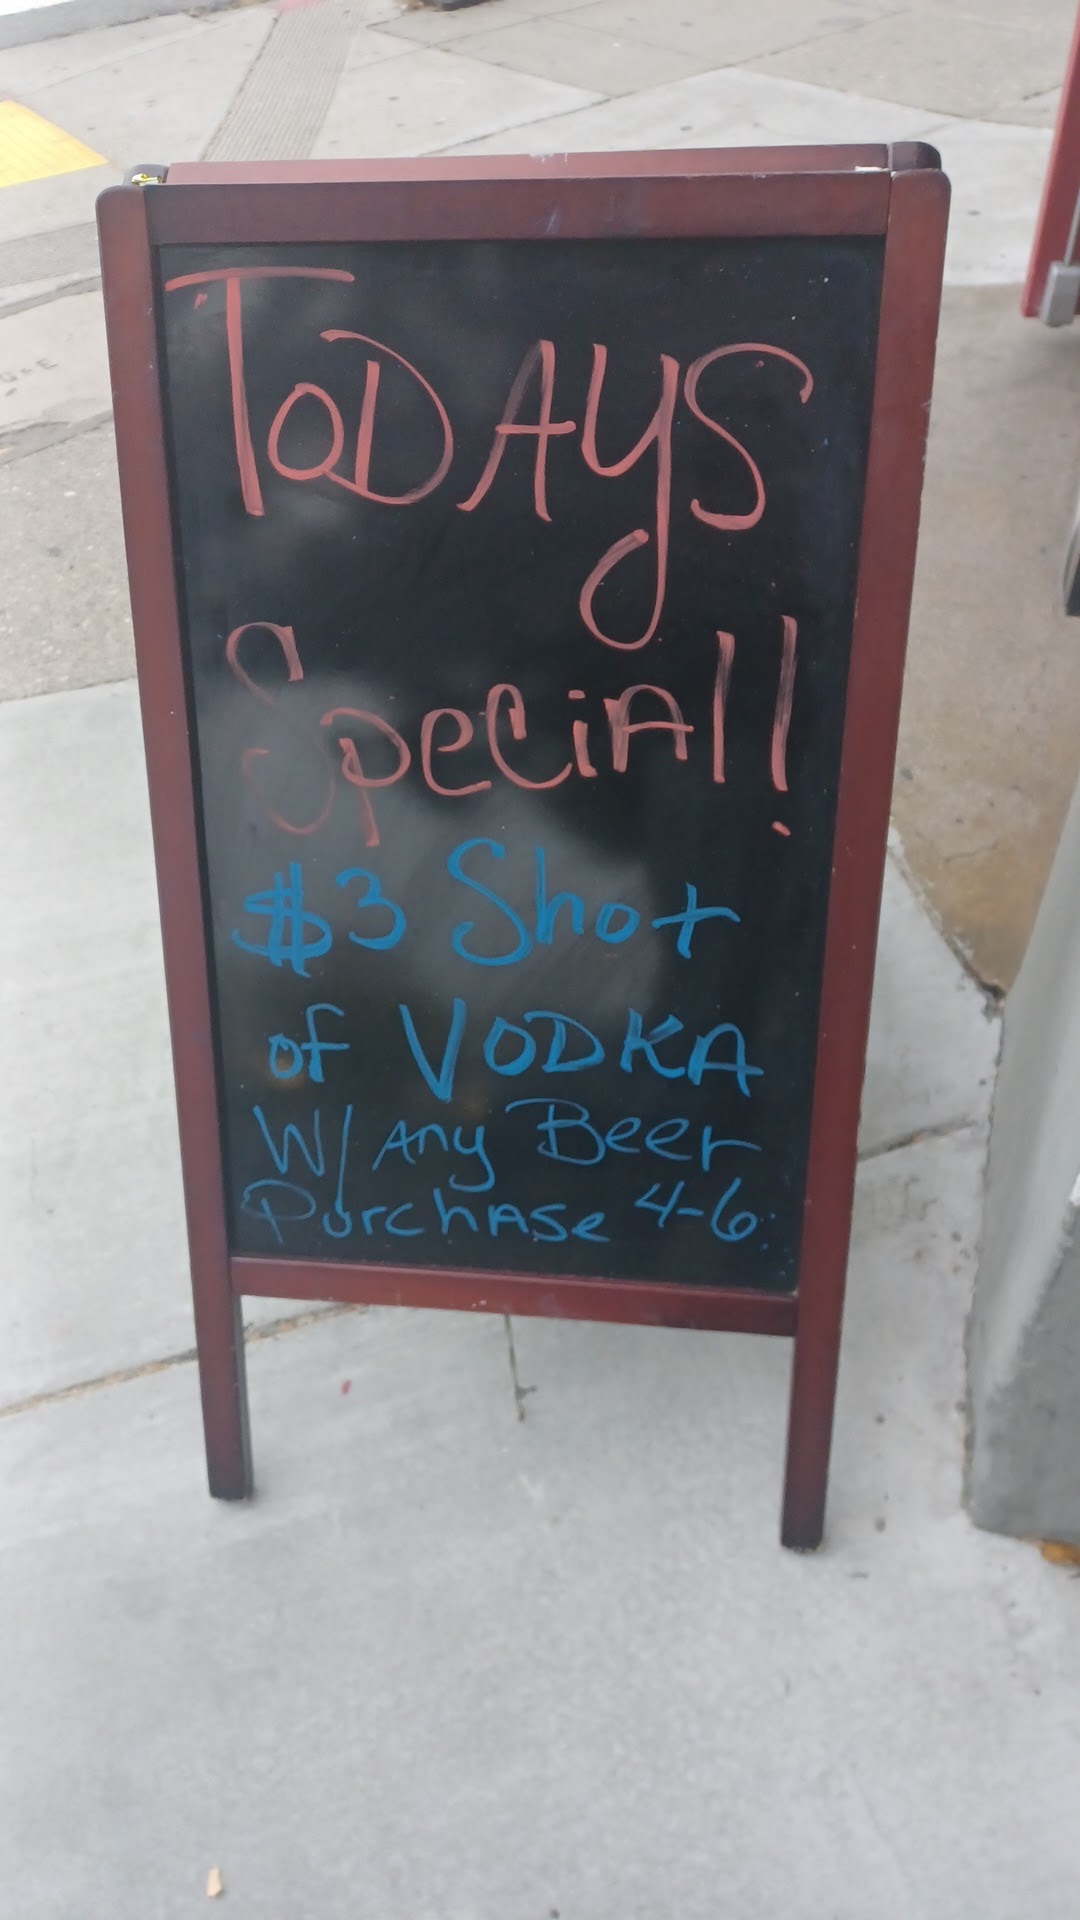 TODAYS
Special!
$3 Shot
of VODKA
W/ Any Beer
Purchase 4-6